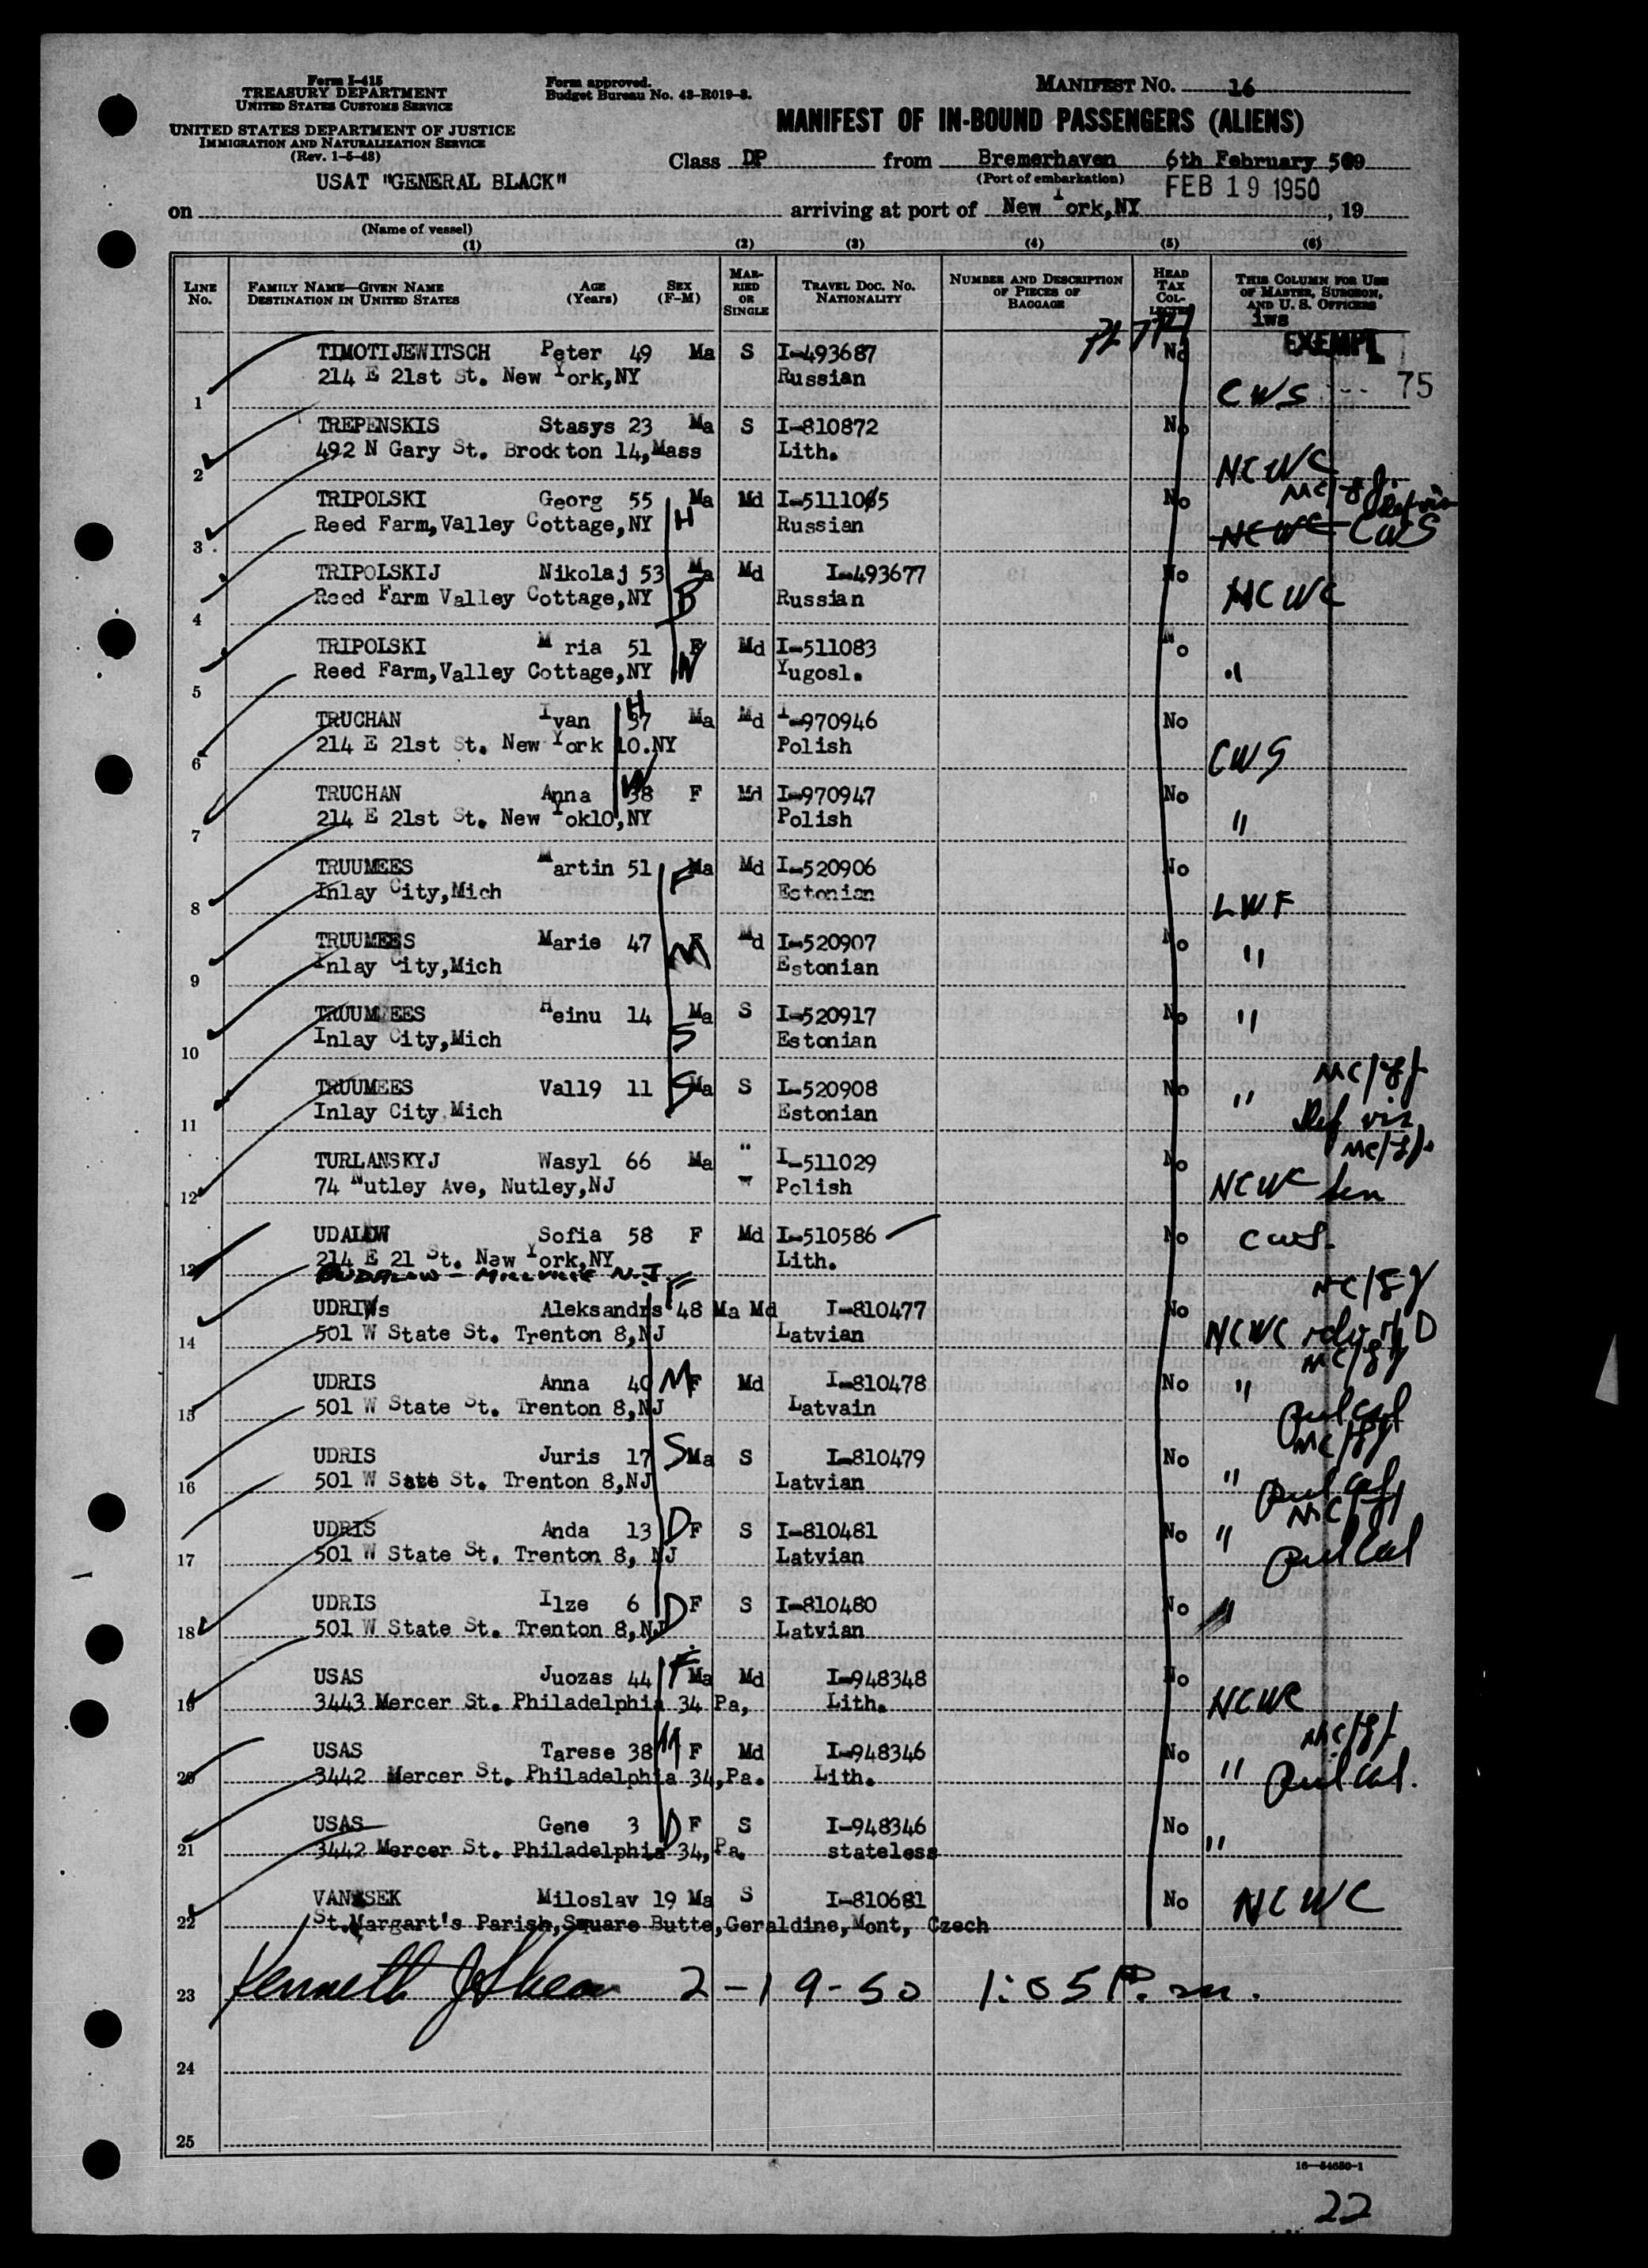 Form I-415
TREASURY DEPARTMENT
UNITED STATES CUSTOMS SERVICE
UNITED STATES DEPARTMENT OF JUSTICE
IMMIGRATION AND NATURALIZATION SERVICE
(Rev. 1-5-48)
Form approved.
Budget Bureau No. 43-R019-3.
MANIFEST No. 16
MANIFEST OF IN-BOUND PASSENGERS (ALIENS)
Class DP from Bremerhaven 6th February 509
(Port of embarkation)
USAT "GENERAL BLACK"
FEB 19 1950
on arriving at port of New York,NY , 19
(Name of vessel)
(1) (2) (3) (4) (5) (6)
LINE No. FAMILY NAME—GIVEN NAME DESTINATION IN UNITED STATES AGE (Years) SEX (F-M) MARRIED OR SINGLE TRAVEL DOC. NO. NATIONALITY NUMBER AND DESCRIPTION OF PIECES OF BAGGAGE HEAD TAX COLLECTED THIS COLUMN FOR USE OF MASTER, SURGEON, AND U. S. OFFICERS
iws
EXEMPT
TIMOTIJEWITSCH Peter 49 Ma S I-493687 No
1 214 E 21st St. New York,NY Russian CWS 75
TREPENSKIS Stasys 23 Ma S I-810872 No
2 492 N Gary St. Brockton 14,Mass Lith. NCWC
TRIPOLSKI Georg 55 Ma Md I-5111065 No
3 Reed Farm,Valley Cottage,NY H Russian NCWC CWS
TRIPOLSKIJ Nikolaj 53 Ma Md I-493677 No
4 Reed Farm Valley Cottage,NY B Russian NCWC
TRIPOLSKI M ria 51 F Md I-511083 No
5 Reed Farm,Valley Cottage,NY W Yugosl. "
TRUCHAN Ivan 37 H Ma Md I-970946 No
6 214 E 21st St. New York 10.NY Polish CWS
TRUCHAN Anna 38 W F Md I-970947 No
7 214 E 21st St. New Yok10,NY Polish "
TRUUMEES Martin 51 F Ma Md I-520906 No
8 Inlay City,Mich Estonian LWF
TRUUMEES Marie 47 M F Md I-520907 No
9 Inlay City,Mich Estonian "
TRUUMEES Heinu 14 S Ma S I-520917 No
10 Inlay City,Mich Estonian "
TRUUMEES Vall9 11 S Ma S I-520908 No
11 Inlay City Mich Estonian "
TURLANSKYJ Wasyl 66 Ma " I-511029 No
12 74 Nutley Ave, Nutley,NJ " Polish NCWC
UDALOW Sofia 58 F Md I-510586 No CWS.
13 214 E 21 St. New York,NY Lith.
BUDALOW - MILLVILLE N.J.
UDRIWs Aleksandrs 48 F Ma Md I-810477 No
14 501 W State St. Trenton 8,NJ Latvian NCWC
UDRIS Anna 40 M F Md I-810478 No
15 501 W State St. Trenton 8,NJ Latvain "
UDRIS Juris 17 S Ma S I-810479 No
16 501 W Sate St. Trenton 8,NJ Latvian "
UDRIS Anda 13 D F S I-810481 No
17 501 W State St. Trenton 8, NJ Latvian "
UDRIS Ilze 6 D F S I-810480 No
18 501 W State St. Trenton 8,NJ Latvian "
USAS Juozas 44 F Ma Md I-948348 No
19 3443 Mercer St. Philadelphia 34 Pa, Lith. NCWC
USAS Tarese 38 M F Md I-948346 No
20 3442 Mercer St. Philadelphia 34,Pa. Lith. "
USAS Gene 3 D F S I-948346 No
21 3442 Mercer St. Philadelphia 34,Pa. stateless "
VANASEK Miloslav 19 Ma S I-810681 No NCWC
22 St.Margart's Parish,Square Butte,Geraldine,Mont, Czech
23 Kenneth J Shea 2-19-50 1:05 P.m.
24
25
16—54650-1
22